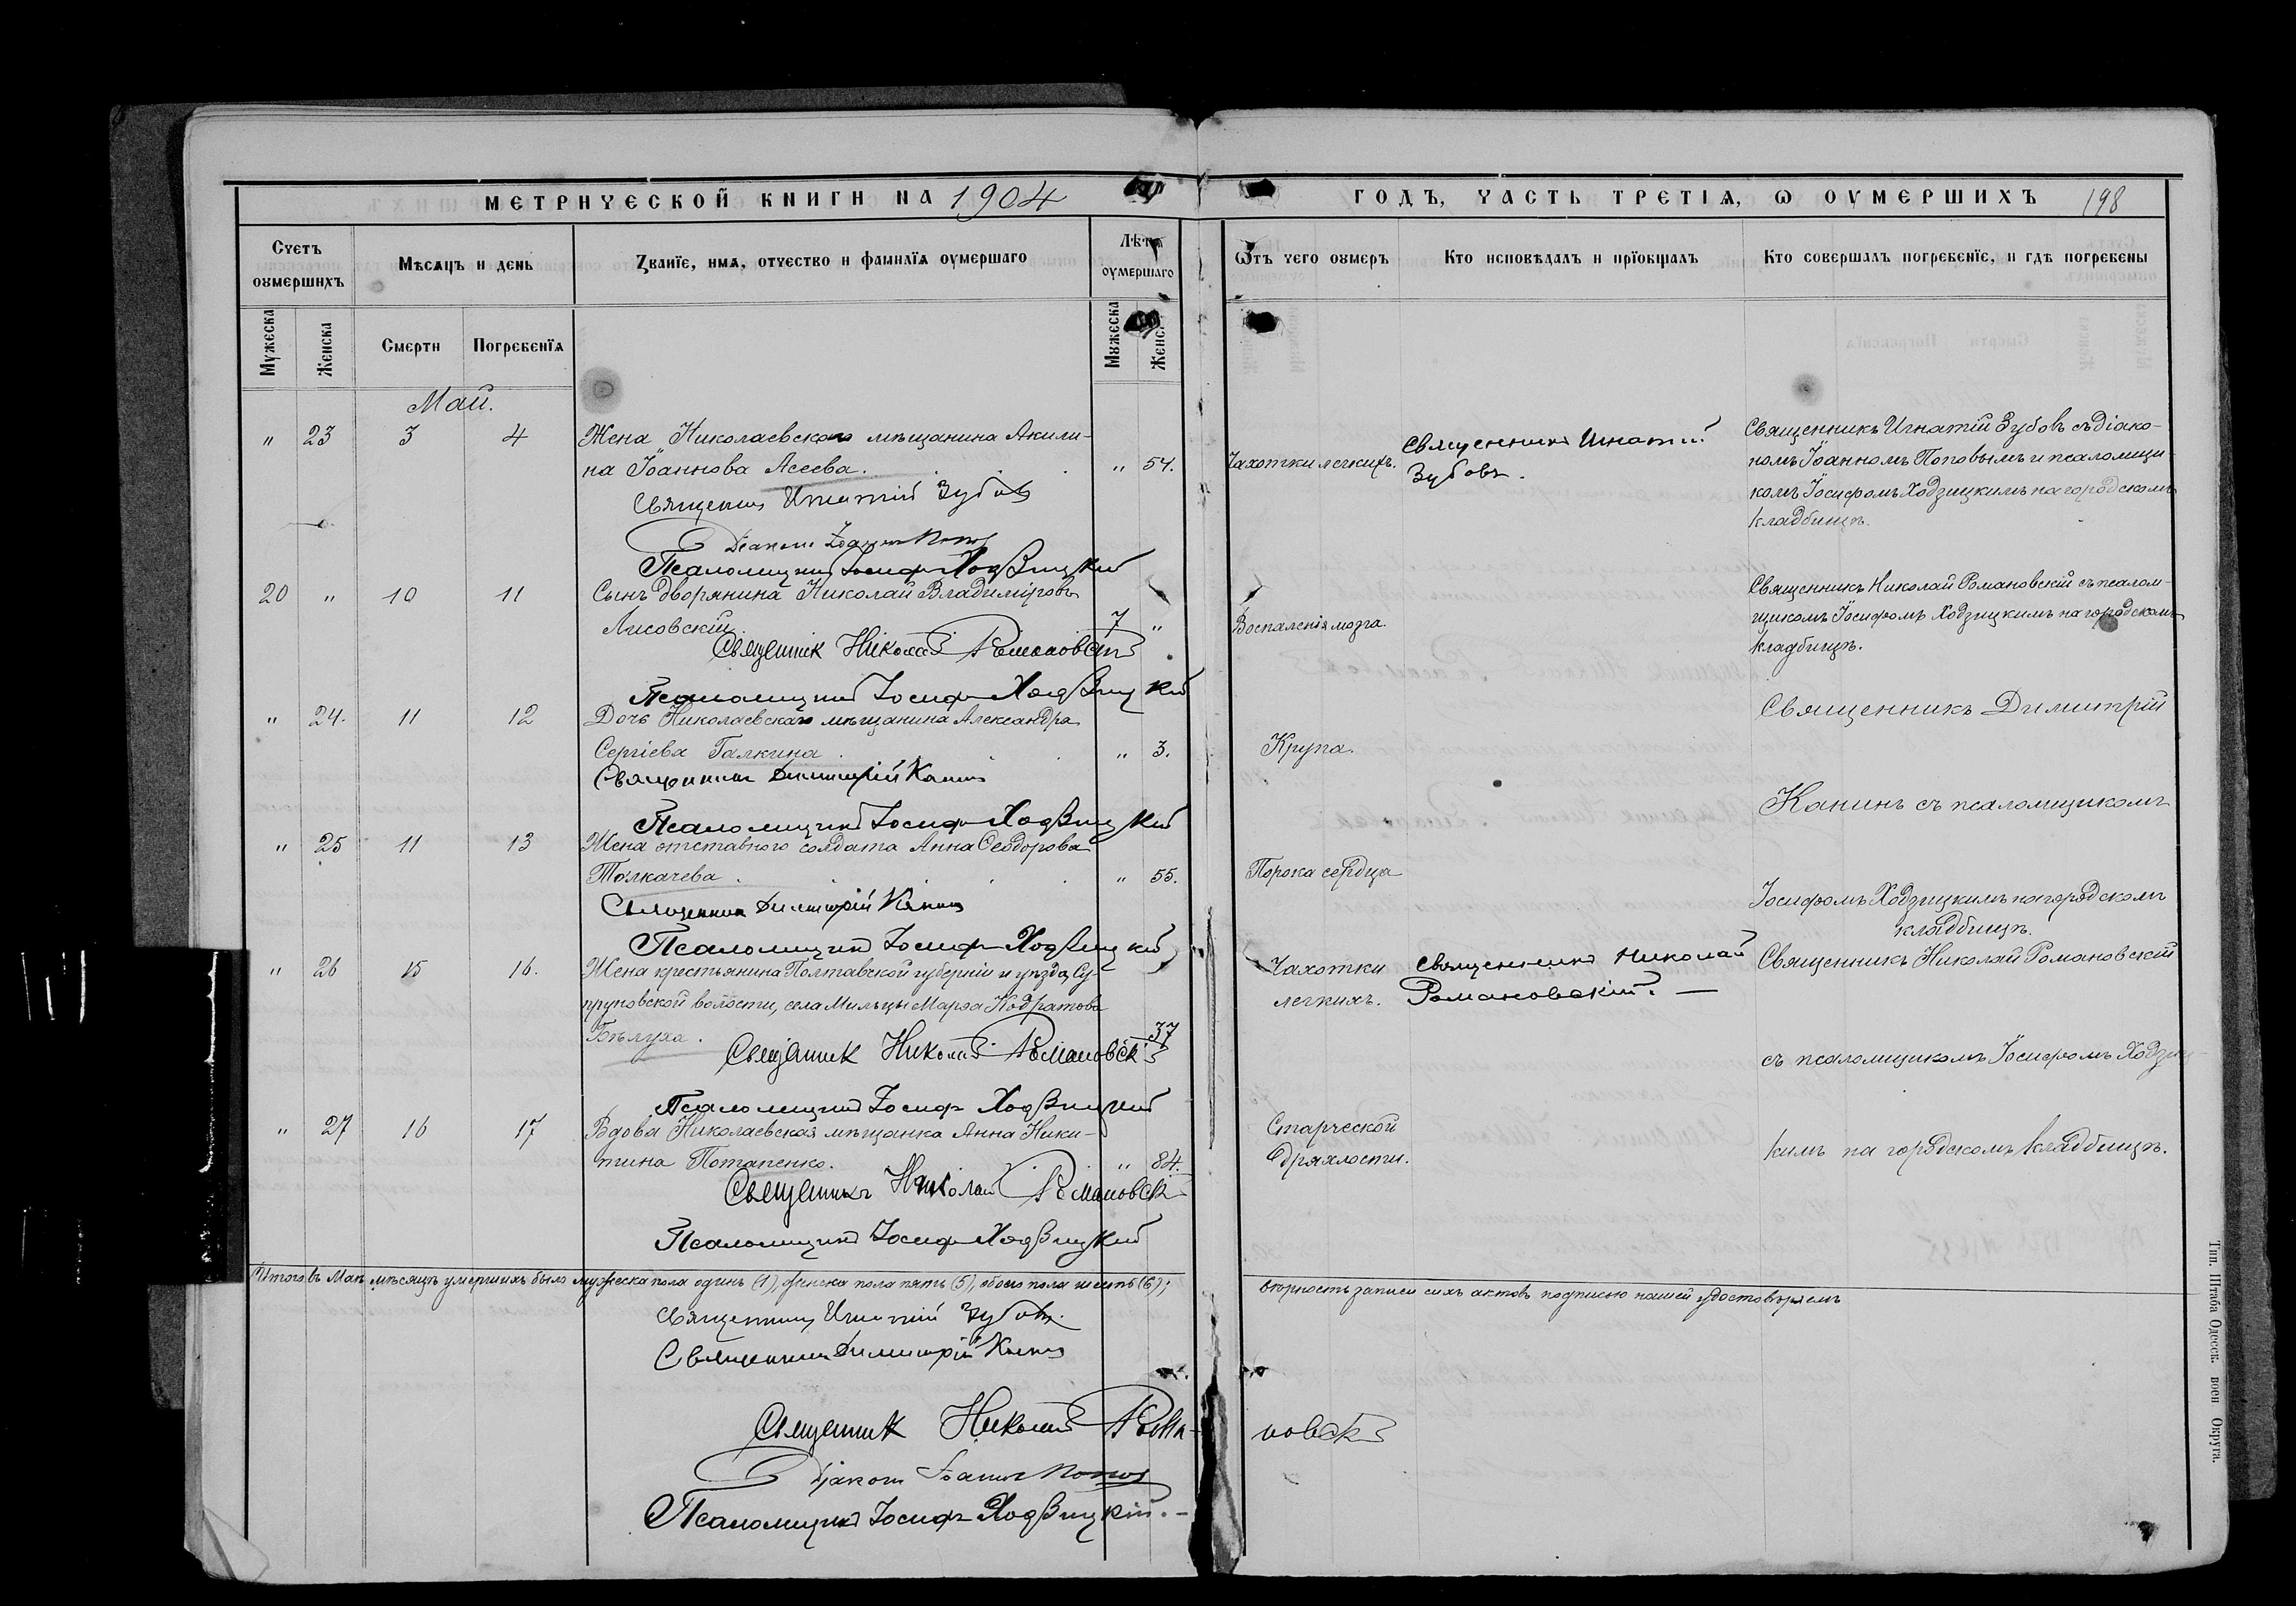 МЕТРИЧЕСКОЙ КНИГИ НА 1904
ГОДЪ, ЧАСТЬ ТРЕТІѦ, Ѡ ОУМЕРШИХЪ 198
Счетъ оумершихъ
Мѣсѧцъ и день
Званїе, имѧ, отчество и фамилїѧ оумершаго
Лѣта оумершаго
Ѿтъ чего оумеръ
Кто исповѣдалъ и прїобщалъ
Кто совершалъ погребенїе, и гдѣ погребены
Мужеска
Женска
Смерти
Погребенїѧ
Мужеска
Женск
Май.
" 23 3 4 Жена Николаевскаго мѣщанина Акили-
на Іоаннова Асеева. " 54. Чахотки легкихъ.
Священникъ Игнатій
Зубовъ.
Священникъ Игнатій Зубовъ съ діако-
номъ Іоанномъ Поповымъ и псаломщи-
комъ Іосифомъ Ходзицкимъ на городскомъ
кладбищѣ.
Священникъ Игнатій Зубовъ
Діаконъ Іоаннъ Поповъ
Псаломщикъ Іосифъ Ходзицкій
20 " 10 11 Сынъ дворянина Николай Владиміровъ
Лисовскій 7 " Воспаленія мозга.
Священникъ Николай Романовскій съ псалом-
щикомъ Іосифомъ Ходзицкимъ на городскомъ
кладбищѣ.
Священник Николай Романовскій
Псаломщикъ Іосифъ Ходзицкій
" 24. 11 12 Дочь Николаевскаго мѣщанина Александра
Сергіева Галкина. " 3. Крупа.
Священникъ Димитрій
Священникъ Димитрій Канинъ
Канинъ съ псаломщикомъ
Псаломщикъ Іосифъ Ходзицкій
" 25 11 13 Жена отставного солдата Анна Ѳеодорова
Толкачева. " 55. Порока сердца
Іосифомъ Ходзицкимъ на городскомъ
кладбищѣ.
Священникъ Димитрій Канинъ
Псаломщикъ Іосифъ Ходзицкій
" 26 15 16. Жена крестьянина Полтавской губерніи и уѣзда, Су-
пруновской волости, села Мильцы Марѳа Кодратова
Бѣлуха. 37
Чахотки
легкихъ.
Священникъ Николай
Романовскій. —
Священникъ Николай Романовскій
съ псаломщикомъ Іосифомъ Ходзиц-
Священник Николай Романовскій
Псаломщикъ Іосифъ Ходзицкій
" 27 16 17 Вдова Николаевская мѣщанка Анна Ники-
тина Потапенко. " 84.
Старческой
дряхлости.
кимъ на городскомъ кладбищѣ.
Священникъ Николай Романовскій
Псаломщикъ Іосифъ Ходзицкій
Итого въ Маѣ мѣсяцѣ умершихъ было мужеска пола одинъ (1), женска пола пять (5), обоего пола шесть (6);
вѣрность записи сихъ актовъ подписью нашей удостовѣряемъ
Священникъ Игнатій Зубовъ.
Священникъ Димитрій Канинъ
Священник Николай Рома-
новскій
Діаконъ Іоаннъ Поповъ
Псаломщикъ Іосифъ Ходзицкій. –
Тип. Штаба Одесск. воен Округа.